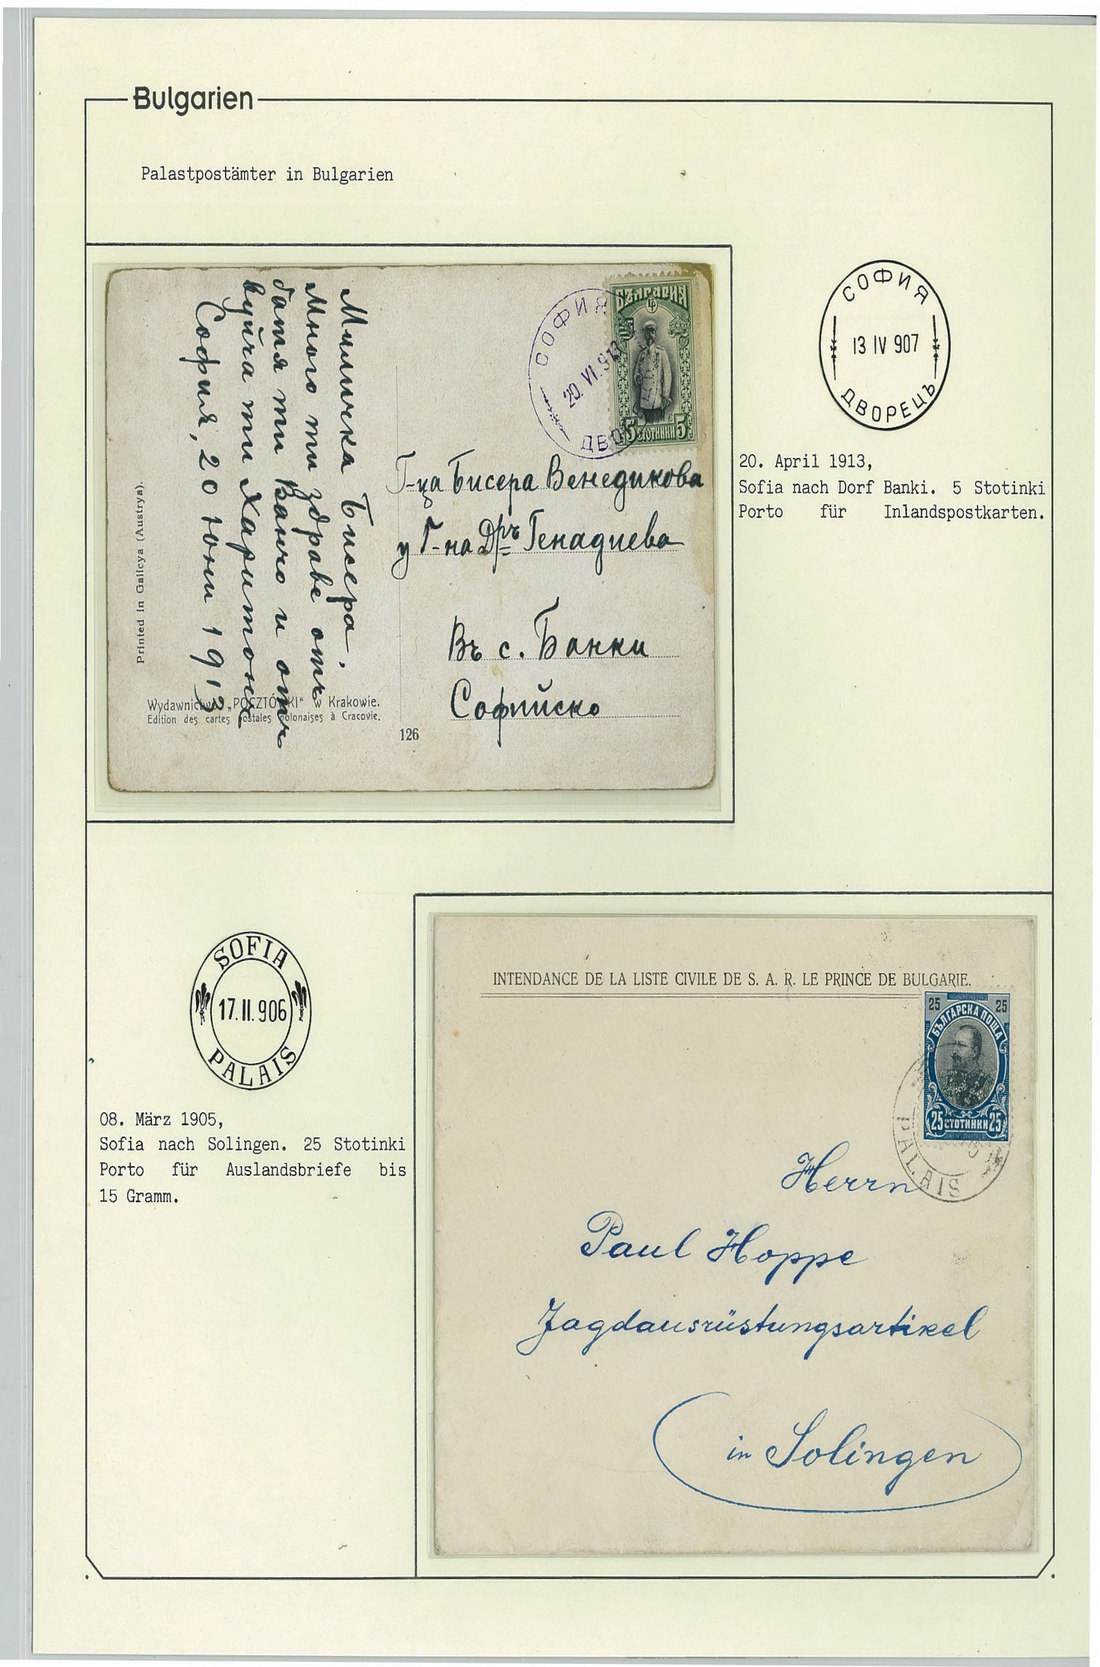 Bulgarien
Palastpostämter in Bulgarien
Миличка Бисера,
Много ти здраве отъ
батя ти Ванчо и отъ
вуйча ти Харитона
София, 20 юни 1913
Printed in Galicya (Austrya).
Wydawnictwo „POCZTÓWKI" w Krakowie.
Edition des cartes postales polonaises à Cracovie.
126
БЪЛГАРИЯ
5 СТОТИНКИ 5
СОФИЯ
20. VI 913
ДВО
Г-ца Бисера Венедикова
у Г-на Дръ Генадиева
Въ с. Банки
Софийско
СОФИЯ
13 IV 907
ДВОРЕЦЪ
20. April 1913,
Sofia nach Dorf Banki. 5 Stotinki
Porto für Inlandspostkarten.
SOFIA
17.II.906
PALAIS
08. März 1905,
Sofia nach Solingen. 25 Stotinki
Porto für Auslandsbriefe bis
15 Gramm.
INTENDANCE DE LA LISTE CIVILE DE S. A. R. LE PRINCE DE BULGARIE.
25 25
БЪЛГАРСКА ПОЩА
25 СТОТИНКИ 25
PALAIS
Herrn
Paul Hoppe
Jagdausrüstungsartikel
in Solingen